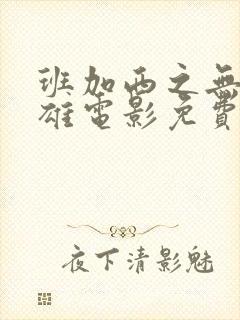 班加西之無
雄電影免費
夜下清影魅